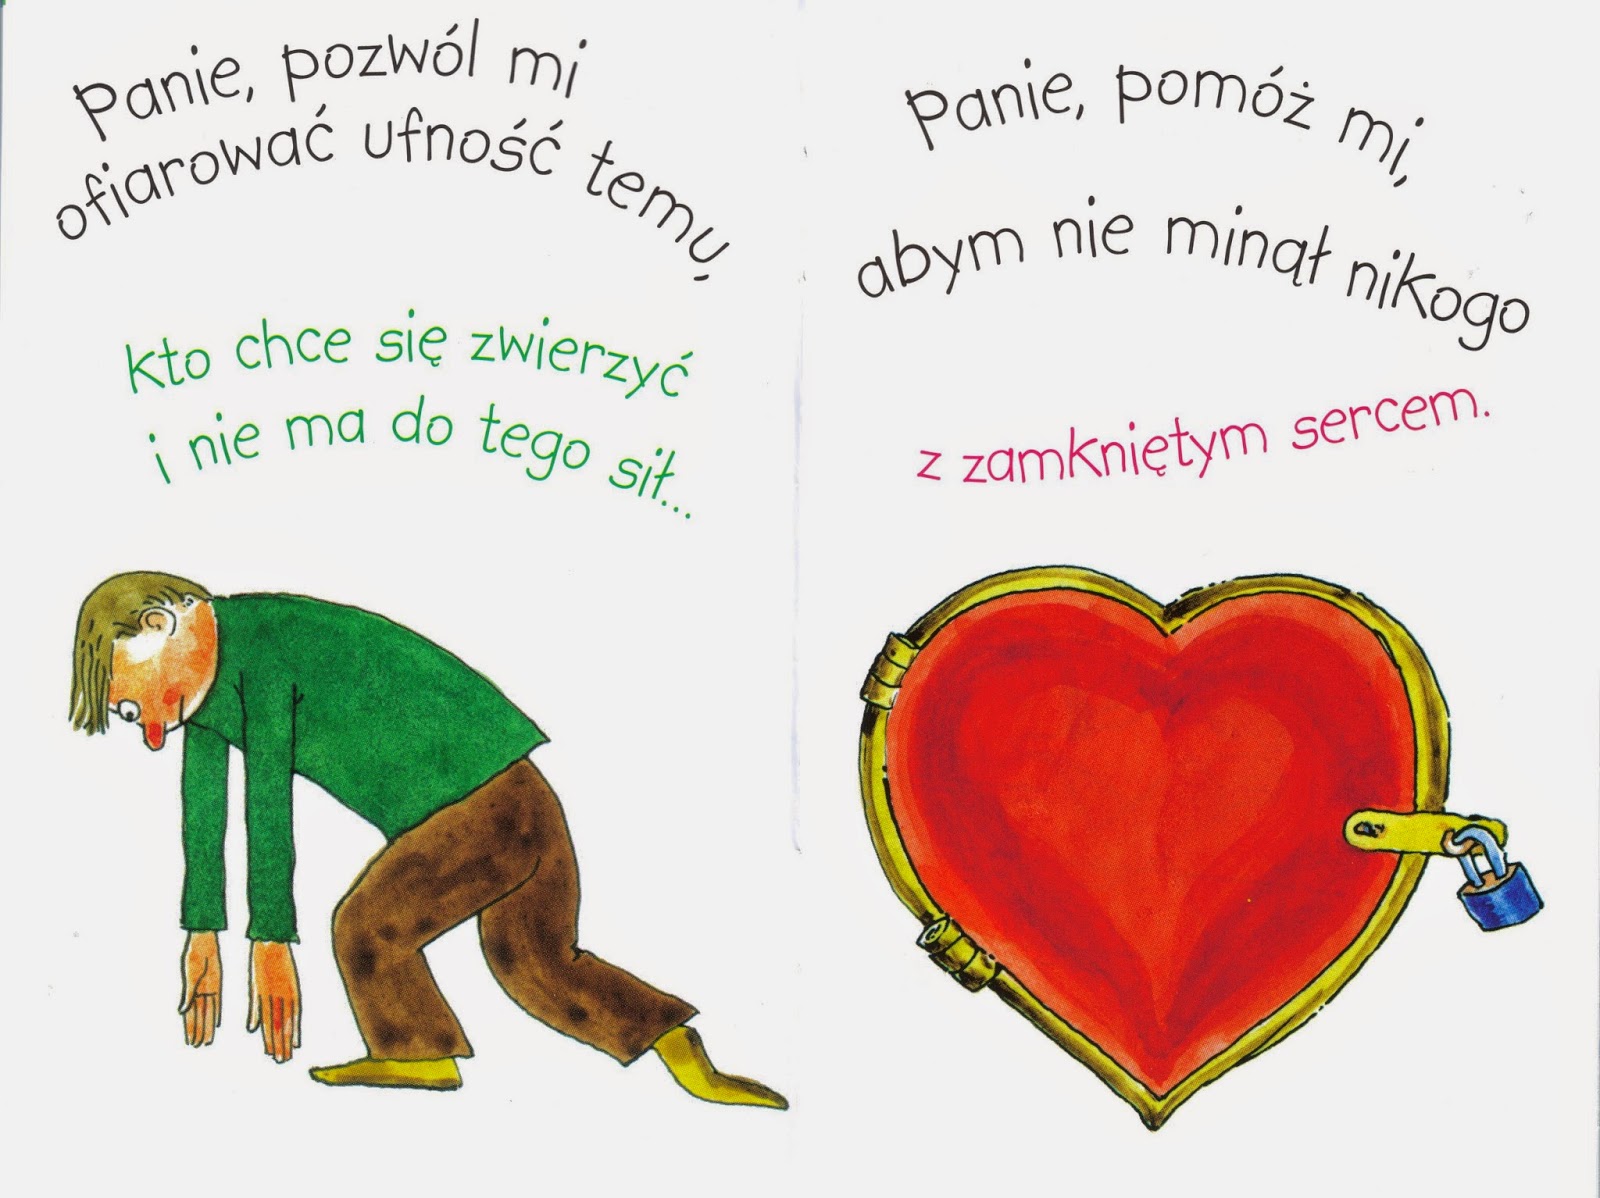 Panie, pozwól mi
ofiarować ufność temu,
kto chce się zwierzyć
i nie ma do tego sił...
Panie, pomóż mi,
abym nie minął nikogo
z zamkniętym sercem.